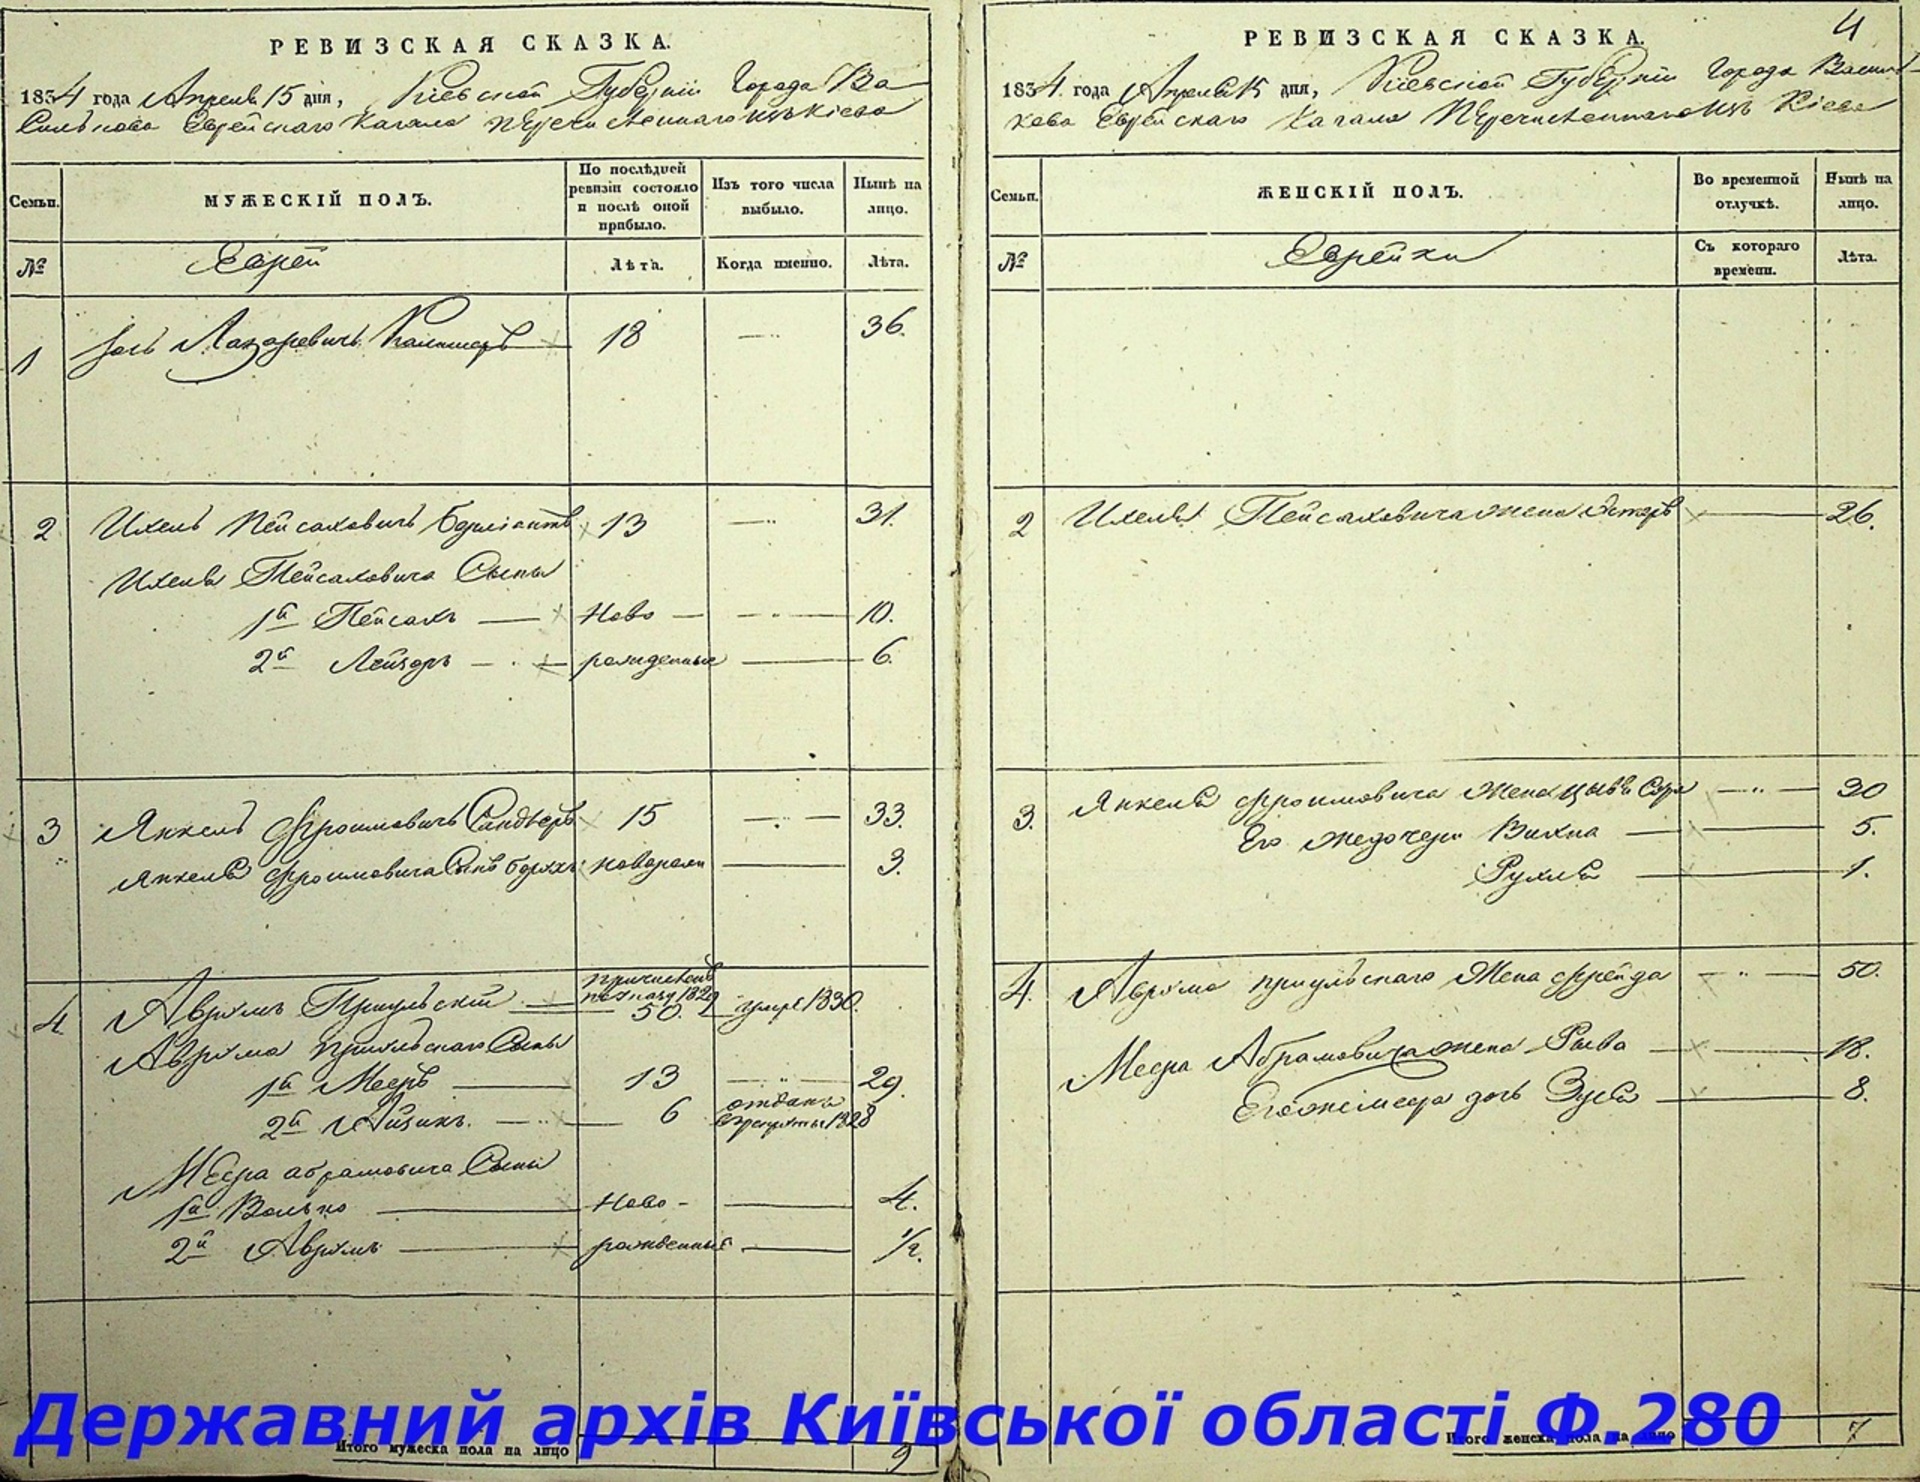 РЕВИЗСКАЯ СКАЗКА.
1834 года Апреля 15 дня, Кіевской Губерніи Города Ва
силькова Еврейскаго Кагала перечисленнаго изъ Кіева
Семьи.
МУЖЕСКІЙ ПОЛЪ.
По послѣдней ревизіи состояло и послѣ оной прибыло.
Изъ того числа выбыло.
Нынѣ на лицо.
№
Еврей
Лѣта.
Когда именно.
Лѣта.
1 Лазаревичъ 18 — 36.
2 Ихель Пейсаховичъ 13 — 31.
Ихеля Пейсаховича Сыны
1й Пейсахъ — Ново — 10.
2й Лейзоръ — рожденные — 6.
3 Янкель Фроимовичъ 15 — 33.
Янкеля Фроимовича Сынъ Борохъ новорожд — 3.
причисленъ
4 Аврумъ 50. умре 1830.
Аврума Сыны
1й Мееръ — 13 — 29.
2й Айзикъ. — 6 отданъ в рекруты 1828
Меера Абрамовича Сыны
1й Волько — Ново - — 4.
2й Аврумъ — рожденные — 1/2.
Итого мужеска пола на лицо 9
4
РЕВИЗСКАЯ СКАЗКА.
1834 года Апреля 15 дня, Кіевской Губерніи Города Василь-
кова Еврейскаго Кагала Перечисленнаго Изъ Кіева
Семьи.
ЖЕНСКІЙ ПОЛЪ.
Во временной отлучкѣ.
Нынѣ на лицо.
№
Еврейки
Съ котораго времени.
Лѣта.
2 Ихеля Пейсаховича жена Эстеръ — 26.
3. Янкеля Фроимовича жена Цывя Сура — 30
Его же дочери Вихна — 5.
Рухля — 1.
4. Аврума жена Фрейда — 50.
Меера Абрамовича жена Рыва — 18.
Его же Меера дочь Зуся — 8.
Итого женска пола на лицо 7
Державний архів Київської області Ф. 280